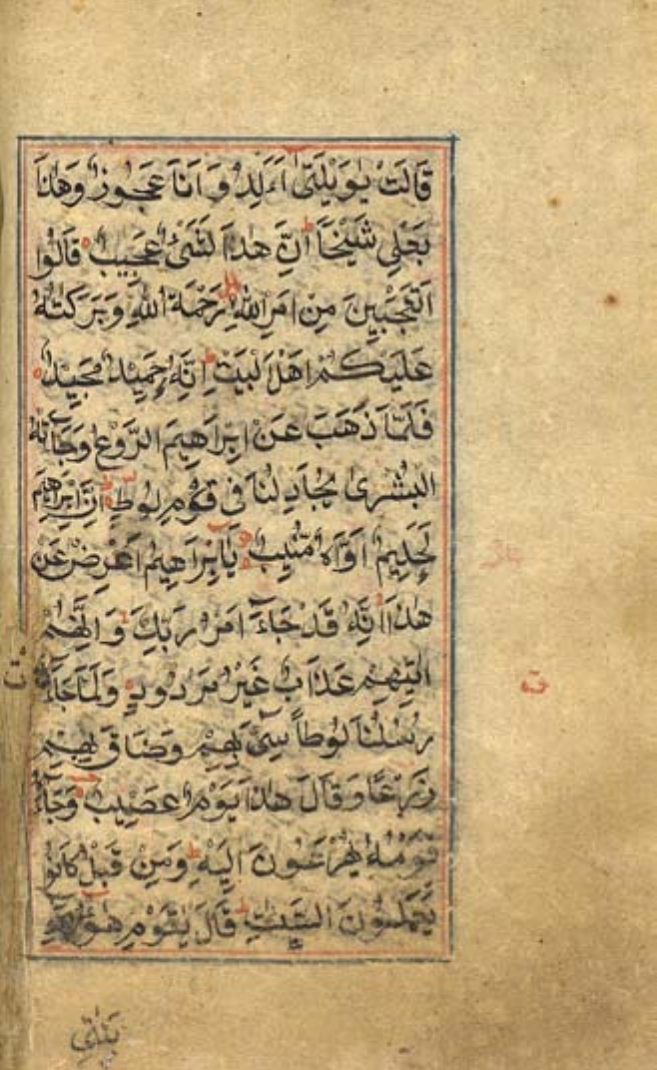 قَالَتْ يٰوَيْلَتٰى ءَاَلِدُ وَ اَنَا عَجُوزٌ وَهٰذَا
بَعْلِى شَيْخًا اِنَّ هٰذَا لَشَىْءٌ عَجِيبٌ قَالُوا
اَتَعْجَبِينَ مِنْ اَمْرِ اللّٰهِ رَحْمَةُ اللّٰهِ وَبَرَكٰتُهُ
عَلَيْكُمْ اَهْلَ الْبَيْتِ اِنَّهُ حَمِيدٌ مَجِيدٌ
فَلَمَّا ذَهَبَ عَنْ اِبْرَاهِيمَ الرَّوْعُ وَجَاءَتْهُ
الْبُشْرٰى يُجَادِلُنَا فِى قَوْمِ لُوطٍ اِنَّ اِبْرَاهِيمَ
لَحَلِيمٌ اَوَّاهٌ مُنِيبٌ يَا اِبْرَاهِيمُ اَعْرِضْ عَنْ
هٰذَا اِنَّهُ قَدْ جَاءَ اَمْرُ رَبِّكَ وَ اِنَّهُمْ
اٰتِيهِمْ عَذَابٌ غَيْرُ مَرْدُودٍ وَلَمَّا جَاءَتْ
رُسُلُنَا لُوطًا سِىءَ بِهِمْ وَضَاقَ بِهِمْ
ذَرْعًا وَ قَالَ هٰذَا يَوْمٌ عَصِيبٌ وَجَاءَهُ
قَوْمُهُ يُهْرَعُونَ اِلَيْهِ وَمِنْ قَبْلُ كَانُوا
يَعْمَلُونَ السَّيِّئَاتِ قَالَ يٰقَوْمِ هٰؤُلَاءِ
بَنَاتِى